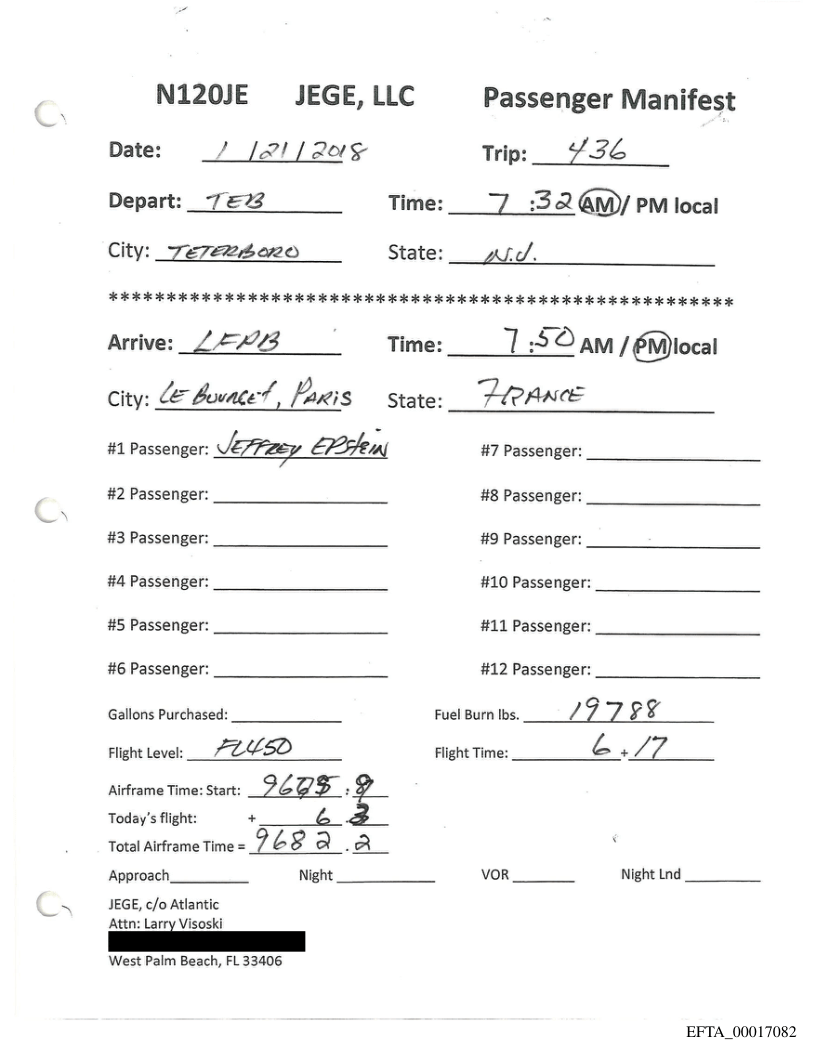 N120JE JEGE, LLC Passenger Manifest
Date: 1 / 21 / 2018 Trip: 436
Depart: TEB Time: 7 :32 AM / PM local
City: TETERBORO State: N.J.
******************************************************
Arrive: LFPB Time: 7 :50 AM / PM local
City: LE BOURGET, PARIS State: FRANCE
#1 Passenger: JEFFREY EPStEIN #7 Passenger:
#2 Passenger: #8 Passenger:
#3 Passenger: #9 Passenger:
#4 Passenger: #10 Passenger:
#5 Passenger: #11 Passenger:
#6 Passenger: #12 Passenger:
Gallons Purchased: Fuel Burn lbs. 19788
Flight Level: FL450 Flight Time: 6 + 17
Airframe Time: Start: 9675 . 9
Today's flight: + 6 . 3
Total Airframe Time = 9682 . 2
Approach Night VOR Night Lnd
JEGE, c/o Atlantic
Attn: Larry Visoski
West Palm Beach, FL 33406
EFTA_00017082